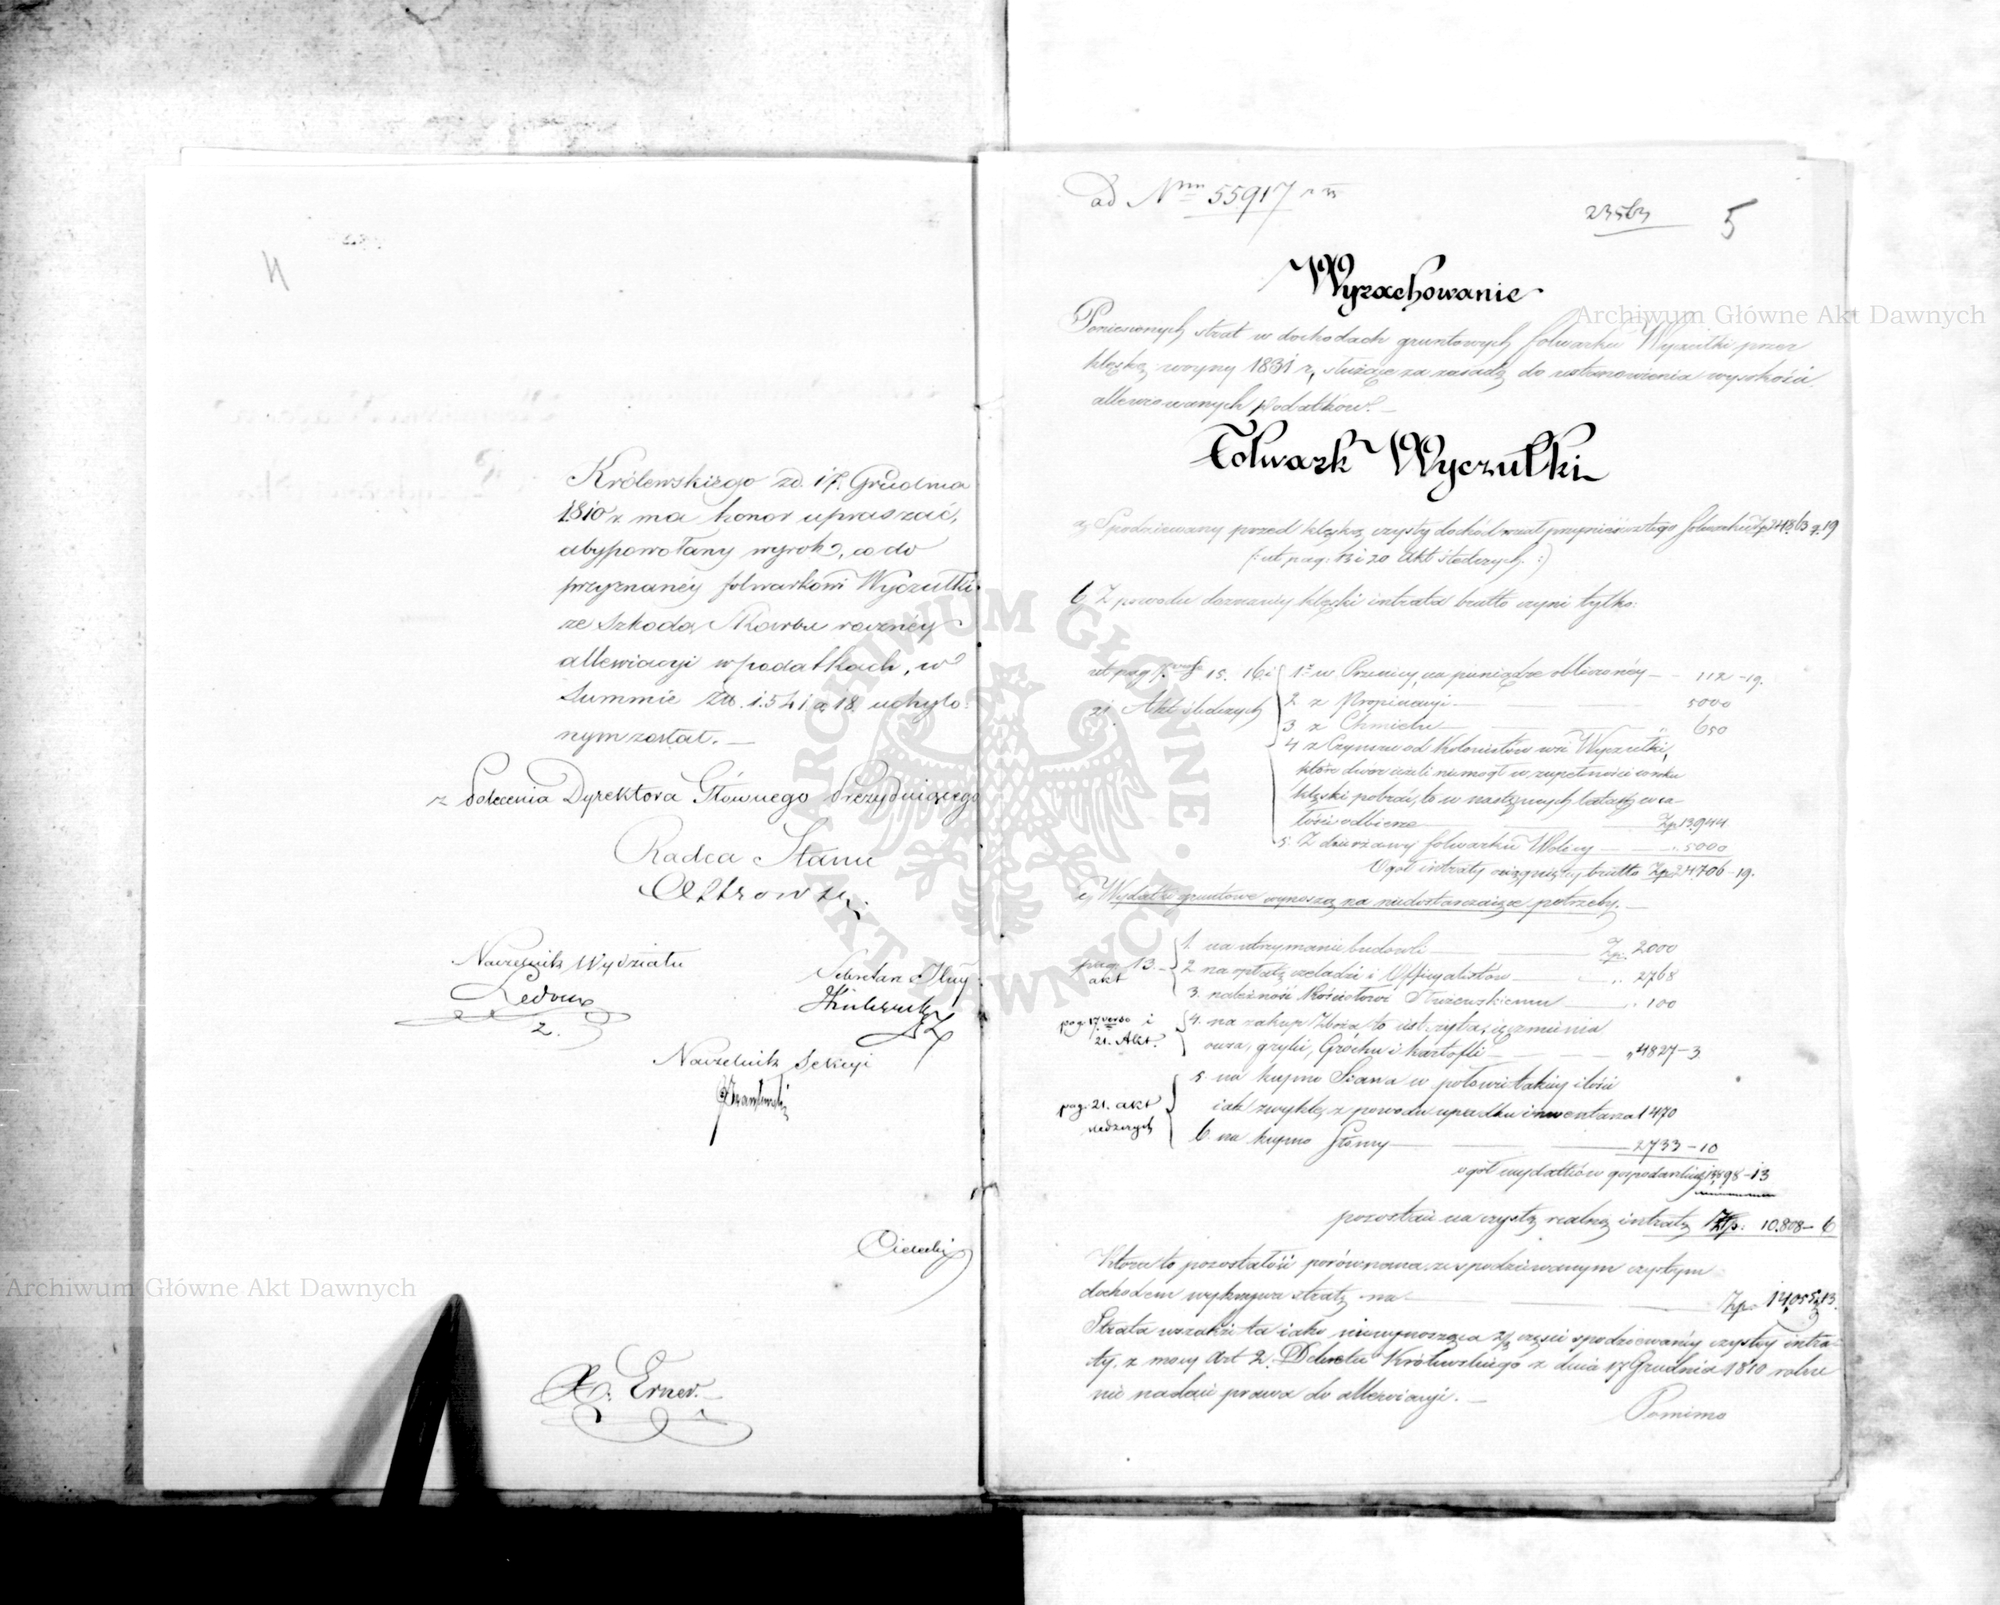 4
Królewskiego zd. 17. Grudnia
1810 r. ma honor upraszać,
abypowołany wyrok, co do
przyznanéy folwarkowi Wyczułki
ze szkodą Skarbu rocznéy
allewiacyi w podatkach, w
Summie Złt. 1.541 g 18. uchylo=
nym został. —
z Polecenia Dyrektora Głównego Prezyduiącego
Radca Stanu
Naczelnik Wydziału
Sekretarz Jlny
Ledoux
2.
Naczelnik Sekcyi
X. Erner.
ad Nrm 55917
23563
5
Wyrachowanie
Poniesionych strat w dochodach gruntowych folwarku Wyczułki przez
klęskę woyny 1831 r, służące za zasadę do ustanowienia wysokości
allewiowanych podatków. —
Folwark Wyczułki
a, Spodziewany przed klęską czysty dochód miał przynieść z tego folwarku Zp 24863 g. 19
(: ut pag: 13 i 20 Akt śledczych. :)
b Z powodu doznanéy klęski intrata brutto czyni tylko:
ut pag 17. verso 15. 16. i
21. Akt śledczych
1º w Pszenicy, na pieniądze obliczonéy — 112 – 19.
2. z Propinacyi — 5000
3 z Chmielu — 650
4 z Czynszu od Kolonistów wsi Wyczułki,
które dwór ieżeli niemógł w zupełności w roku
klęski pobrać, to w następnych latach w ca-
łości odbierze — Zp 13.944
5. Z dzierżawy folwarku Wolicy — 5000
Ogół intraty osiągnięty brutto Zp 24.706 – 19.
c, Wydatki gruntowe wynoszą na niedostarczaiące potrzeby. —
pag. 13.
akt
1. na utrzymanie budowli — Zp. 2000
2. na opłatę czeladzi i Officyalistów — „ 2768
3. należność Kościołowi Służewskiemu — „ 100
pag. 17 verso i
21. Akt.
4. na zakup Zboża to iest żyta, ięczmienia
owsa, gryki, Grochu i kartofli — „ 4827 – 3
pag. 21. akt
śledczych
5. na kupno Siana w połowie takiéy ilości
iak zwykle, z powodu upadku inwentarza 1470
6. na kupno Słomy — 2733 – 10
ogół wydatków gospodarskich 13898 – 13
pozostaie na czystą realną intratę Zp. 10.808 – 6
Która to pozostałość porównana, ze spodziewanym czystym
dochodem wykazuie stratę na — Zp. 14,055 g 13.
Strata wszakże ta iako niewynosząca 2/3 części spodziewanéy czystéy intra-
ty, z mocy Art 2. Dekretu Królewskiego z dnia 17 Grudnia 1810 roku
nie nadaie prawa do allewiacyi. —
Pomimo
Archiwum Główne Akt Dawnych
Archiwum Główne Akt Dawnych
ARCHIWUM GŁÓWNE AKT DAWNYCH